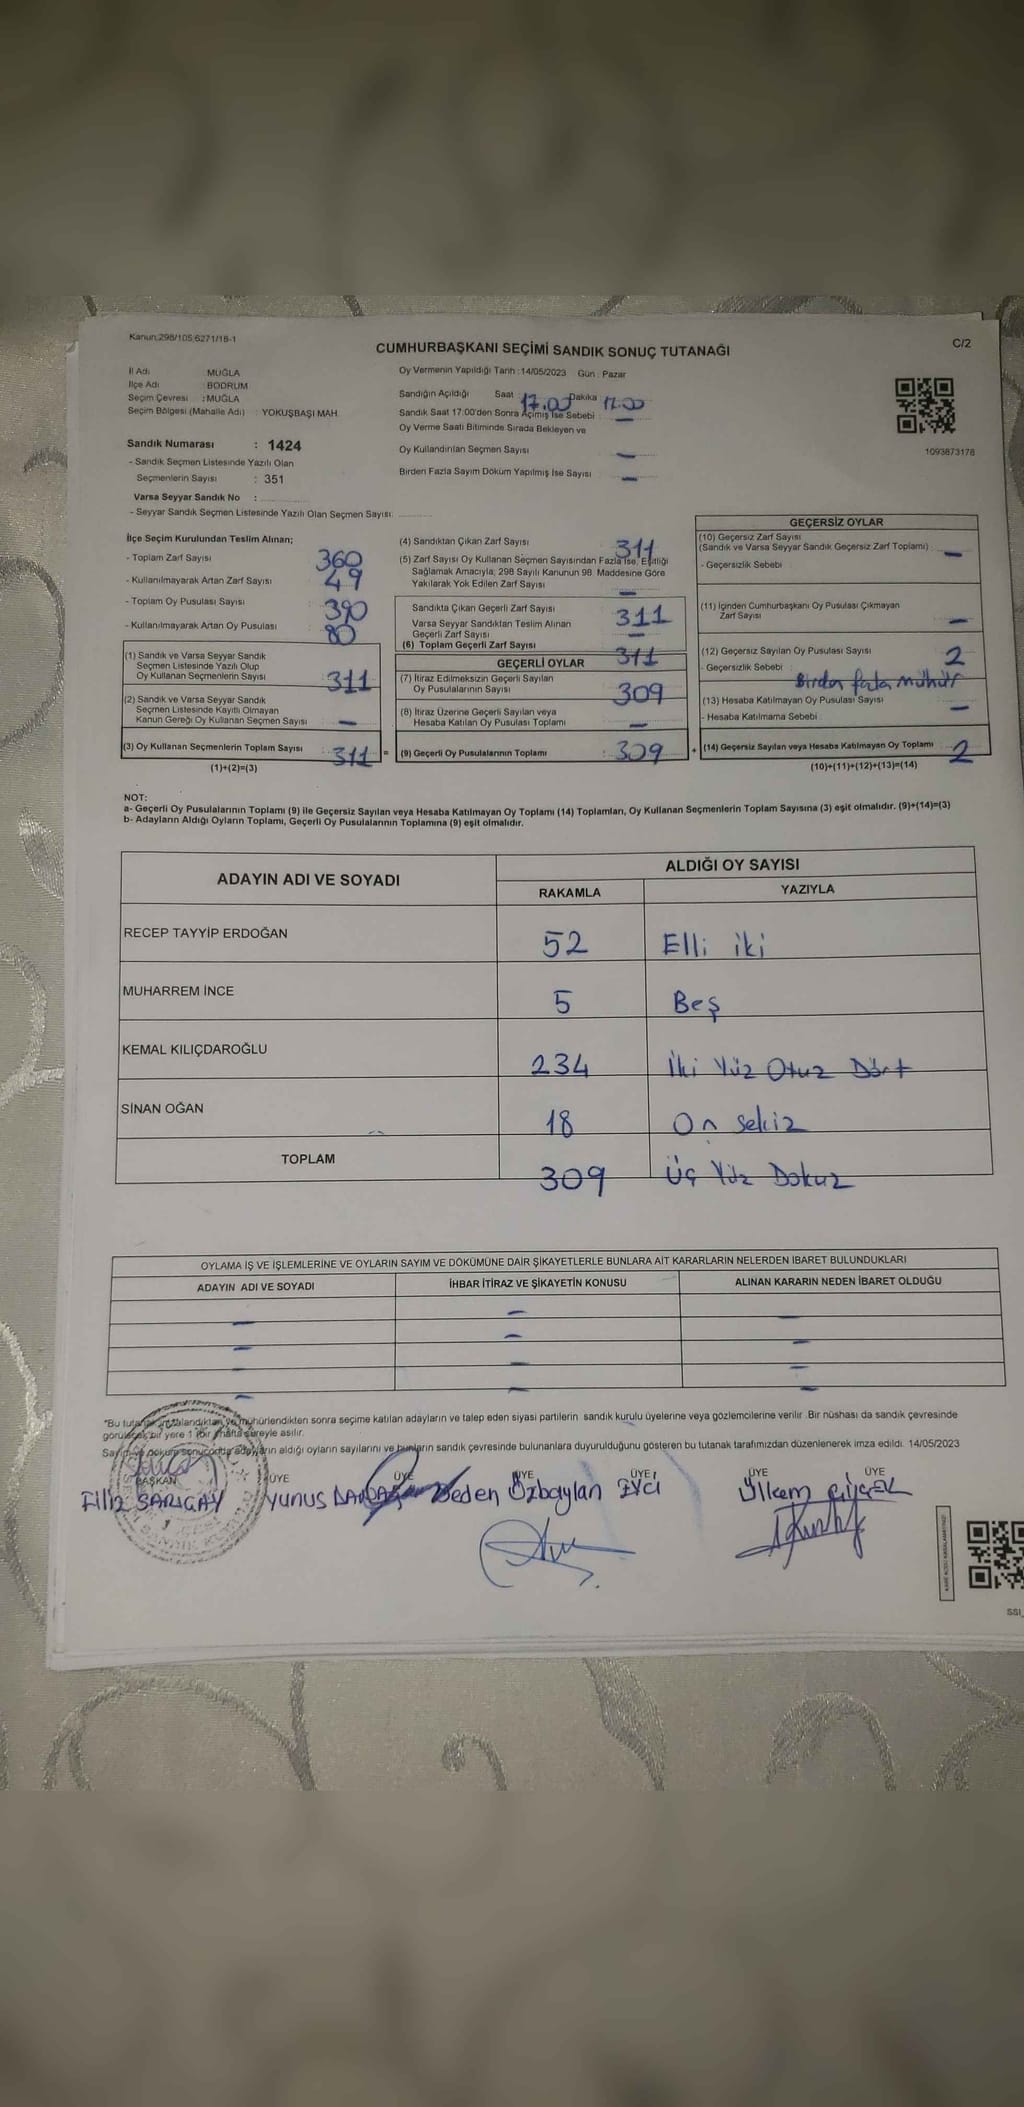 Kanun:298/105,6271/18-1
CUMHURBAŞKANI SEÇİMİ SANDIK SONUÇ TUTANAĞI
C/2
İl Adı MUĞLA
İlçe Adı : BODRUM
Seçim Çevresi : MUĞLA
Seçim Bölgesi (Mahalle Adı) : YOKUŞBAŞI MAH.
Sandık Numarası : 1424
- Sandık Seçmen Listesinde Yazılı Olan
Seçmenlerin Sayısı : 351
Varsa Seyyar Sandık No :
- Seyyar Sandık Seçmen Listesinde Yazılı Olan Seçmen Sayısı:
Oy Vermenin Yapıldığı Tarih :14/05/2023 Gün : Pazar
Sandığın Açıldığı Saat 17.00 Dakika 17.00
Sandık Saat 17:00'den Sonra Açılmış İse Sebebi : —
Oy Verme Saati Bitiminde Sırada Bekleyen ve
Oy Kullandırılan Seçmen Sayısı —
Birden Fazla Sayım Döküm Yapılmış İse Sayısı —
1093873178
İlçe Seçim Kurulundan Teslim Alınan;
- Toplam Zarf Sayısı 360
- Kullanılmayarak Artan Zarf Sayısı 49
- Toplam Oy Pusulası Sayısı 390
- Kullanılmayarak Artan Oy Pusulası 80
(1) Sandık ve Varsa Seyyar Sandık
Seçmen Listesinde Yazılı Olup
Oy Kullanan Seçmenlerin Sayısı 311
(2) Sandık ve Varsa Seyyar Sandık
Seçmen Listesinde Kayıtlı Olmayan
Kanun Gereği Oy Kullanan Seçmen Sayısı —
(3) Oy Kullanan Seçmenlerin Toplam Sayısı : 311 =
(1)+(2)=(3)
(4) Sandıktan Çıkan Zarf Sayısı 311
(5) Zarf Sayısı Oy Kullanan Seçmen Sayısından Fazla İse, Eşitliği
Sağlamak Amacıyla, 298 Sayılı Kanunun 98. Maddesine Göre
Yakılarak Yok Edilen Zarf Sayısı —
Sandıkta Çıkan Geçerli Zarf Sayısı 311
Varsa Seyyar Sandıktan Teslim Alınan
Geçerli Zarf Sayısı —
(6) Toplam Geçerli Zarf Sayısı 311
GEÇERLİ OYLAR
(7) İtiraz Edilmeksizin Geçerli Sayılan
Oy Pusulalarının Sayısı 309
(8) İtiraz Üzerine Geçerli Sayılan veya
Hesaba Katılan Oy Pusulası Toplamı —
(9) Geçerli Oy Pusulalarının Toplamı : 309 +
GEÇERSİZ OYLAR
(10) Geçersiz Zarf Sayısı
(Sandık ve Varsa Seyyar Sandık Geçersiz Zarf Toplamı) : —
- Geçersizlik Sebebi
(11) İçinden Cumhurbaşkanı Oy Pusulası Çıkmayan
Zarf Sayısı —
(12) Geçersiz Sayılan Oy Pusulası Sayısı 2
- Geçersizlik Sebebi : Birden fazla mühür
(13) Hesaba Katılmayan Oy Pusulası Sayısı —
- Hesaba Katılmama Sebebi
(14) Geçersiz Sayılan veya Hesaba Katılmayan Oy Toplamı 2
(10)+(11)+(12)+(13)=(14)
NOT:
a- Geçerli Oy Pusulalarının Toplamı (9) ile Geçersiz Sayılan veya Hesaba Katılmayan Oy Toplamı (14) Toplamları, Oy Kullanan Seçmenlerin Toplam Sayısına (3) eşit olmalıdır. (9)+(14)=(3)
b- Adayların Aldığı Oyların Toplamı, Geçerli Oy Pusulalarının Toplamına (9) eşit olmalıdır.
ADAYIN ADI VE SOYADI ALDIĞI OY SAYISI
RAKAMLA YAZIYLA
RECEP TAYYİP ERDOĞAN 52 Elli iki
MUHARREM İNCE 5 Beş
KEMAL KILIÇDAROĞLU 234 İki Yüz Otuz Dört
SİNAN OĞAN 18 On sekiz
TOPLAM 309 Üç Yüz Dokuz
OYLAMA İŞ VE İŞLEMLERİNE VE OYLARIN SAYIM VE DÖKÜMÜNE DAİR ŞİKAYETLERLE BUNLARA AİT KARARLARIN NELERDEN İBARET BULUNDUKLARI
ADAYIN ADI VE SOYADI İHBAR İTİRAZ VE ŞİKAYETİN KONUSU ALINAN KARARIN NEDEN İBARET OLDUĞU
— — —
— — —
— — —
— — —
mühürlendikten sonra seçime katılan adayların ve talep eden siyasi partilerin sandık kurulu üyelerine veya gözlemcilerine verilir. Bir nüshası da sandık çevresinde
görülecek bir yere 1 (bir) hafta süreyle asılır.
adayların aldığı oyların sayılarını ve bunların sandık çevresinde bulunanlara duyurulduğunu gösteren bu tutanak tarafımızdan düzenlenerek imza edildi. 14/05/2023
BAŞKAN ÜYE ÜYE ÜYE ÜYE ÜYE ÜYE
Filiz SARIGAY Yunus Özbaylan EVCİ Ülkem ÇİÇEK